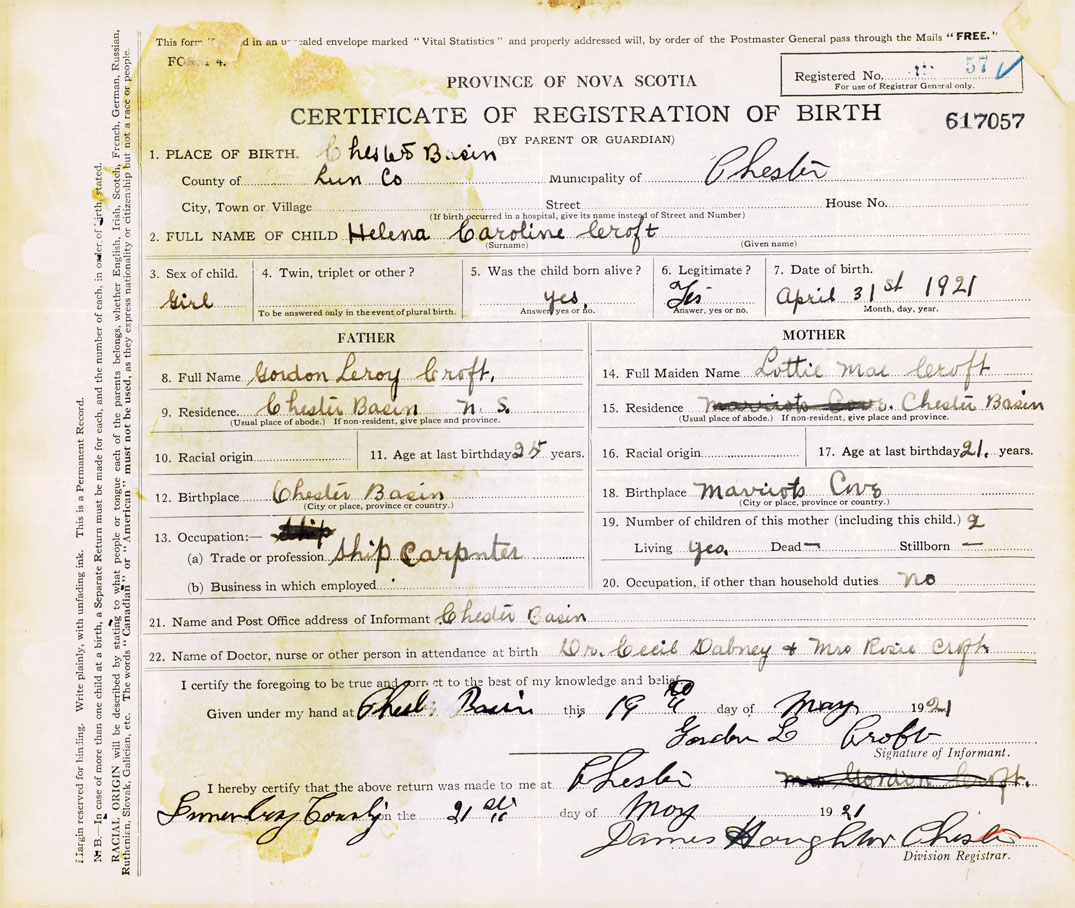 This form if in an unsealed envelope marked "Vital Statistics" and properly addressed will, by order of the Postmaster General pass through the Mails "FREE."
FORM 4.
Registered No. 57
For use of Registrar General only.
PROVINCE OF NOVA SCOTIA
CERTIFICATE OF REGISTRATION OF BIRTH
617057
(BY PARENT OR GUARDIAN)
1. PLACE OF BIRTH. Chester Basin
County of Lun Co Municipality of Chester
City, Town or Village Street House No.
(If birth occurred in a hospital, give its name instead of Street and Number)
2. FULL NAME OF CHILD Helena Caroline Croft
(Surname) (Given name)
3. Sex of child. 4. Twin, triplet or other? 5. Was the child born alive? 6. Legitimate? 7. Date of birth.
Girl yes. Yes April 31st 1921
To be answered only in the event of plural birth. Answer, yes or no. Answer, yes or no. Month, day, year.
FATHER MOTHER
8. Full Name Gordon Leroy Croft. 14. Full Maiden Name Lottie Mae Croft
9. Residence. Chester Basin N. S. 15. Residence Marriots Cove. Chester Basin
(Usual place of abode.) If non-resident, give place and province. (Usual place of abode.) If non-resident, give place and province.
10. Racial origin 11. Age at last birthday 25 years. 16. Racial origin 17. Age at last birthday 21. years.
12. Birthplace Chester Basin 18. Birthplace Marriots Cove
(City or place, province or country.) (City or place, province or country.)
13. Occupation:— Ship 19. Number of children of this mother (including this child.) 2
(a) Trade or profession Ship Carpnter Living yes. Dead — Stillborn —
(b) Business in which employed 20. Occupation, if other than household duties No
21. Name and Post Office address of Informant Chester Basin
22. Name of Doctor, nurse or other person in attendance at birth Dr. Cecil Dabney + Mrs Rosie Croft
I certify the foregoing to be true and correct to the best of my knowledge and belief.
Given under my hand at Chest Basin this 19 day of May 1921
Gordon L Croft
Signature of Informant.
Mrs Gordon Croft.
I hereby certify that the above return was made to me at Chester
Lunenburg County on the 21 day of May 1921
James Houghton Chester
Division Registrar.
Margin reserved for binding. Write plainly, with unfading ink. This is a Permanent Record.
N. B.—In case of more than one child at a birth, a Separate Return must be made for each, and the number of each, in order of birth, stated.
RACIAL ORIGIN will be described by stating to what people or tongue each of the parents belongs, whether English, Irish, Scotch, French, German, Russian,
Ruthenian, Slovak, Galician, etc. The words "Canadian" or "American" must not be used, as they express nationality or citizenship but not a race or people.